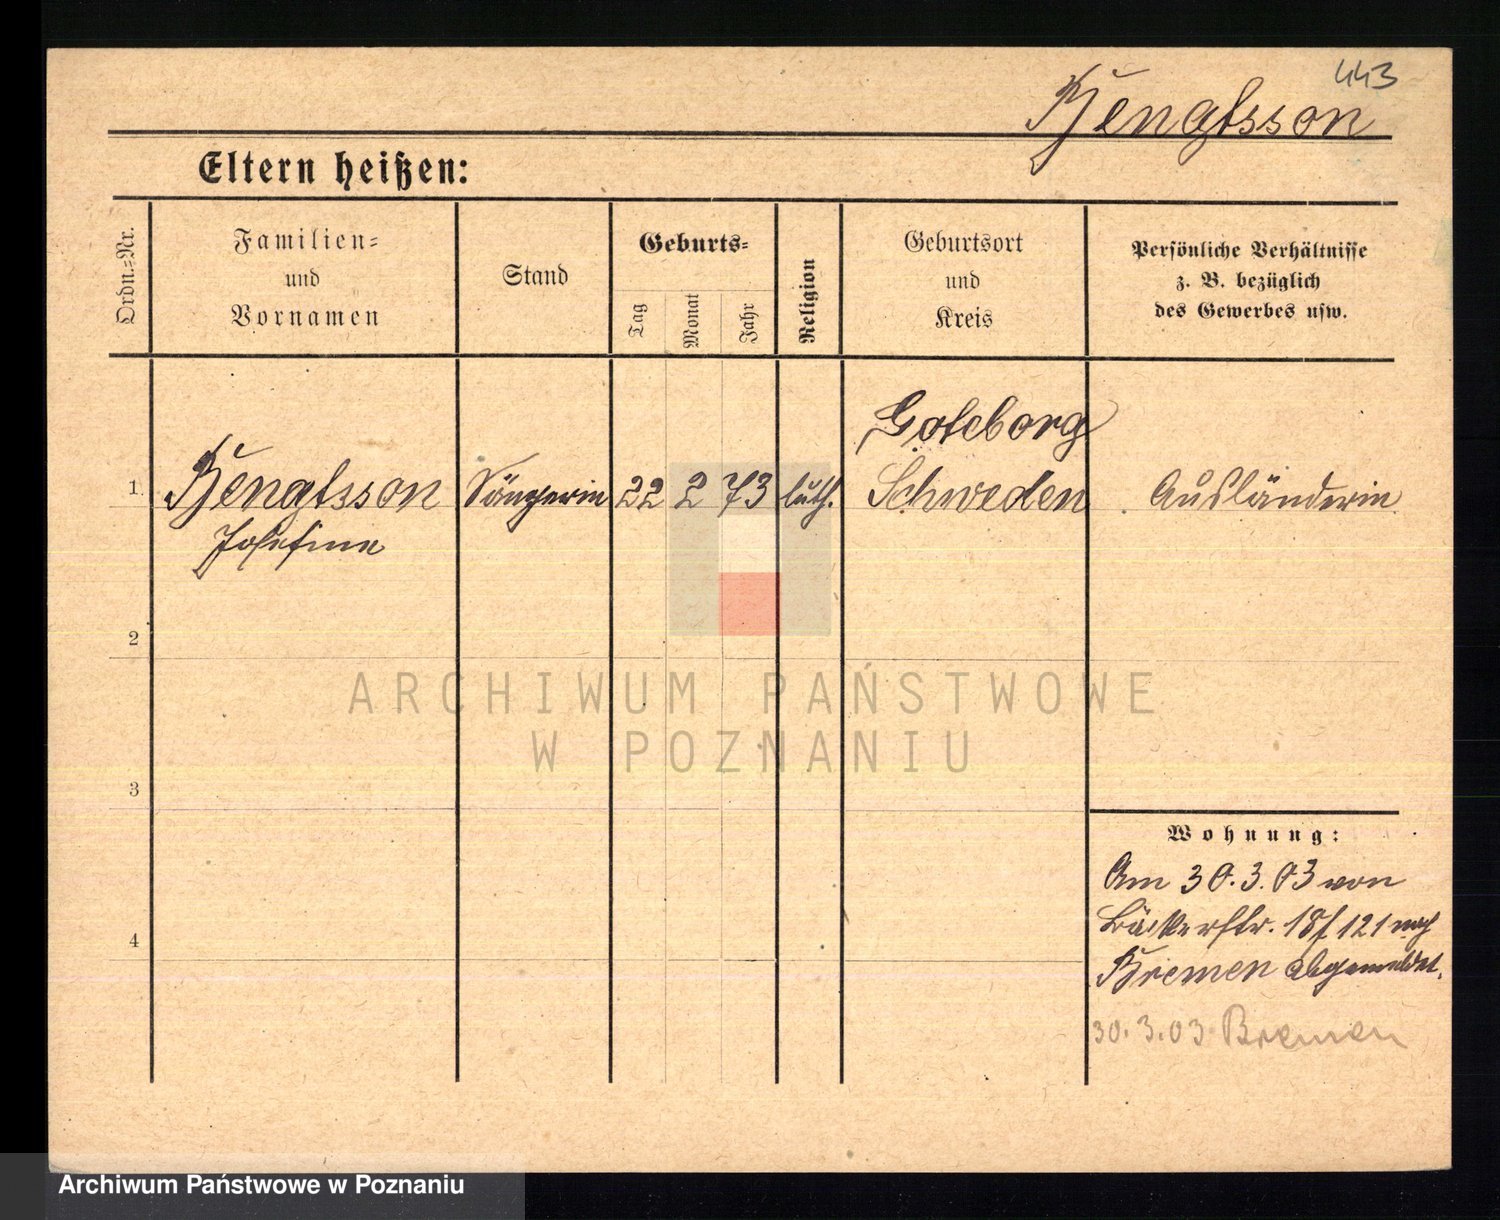 443
Bengtsson
Eltern heißen:
Ordn.=Nr.
Familien=
und
Vornamen
Stand
Geburts=
Tag
Monat
Jahr
Religion
Geburtsort
und
Kreis
Persönliche Verhältnisse
z. B. bezüglich
des Gewerbes usw.
Goteborg
1. Bengtsson Sängerin 22 2 73 luth. Schweden Ausländerin
Josefine
2
ARCHIWUM PAŃSTWOWE
W POZNANIU
3
Wohnung:
Am 30.3.03 von
Bäckerstr. 18/121 nach
4
Bremen abgemeldet.
30.3.03 Bremen
Archiwum Państwowe w Poznaniu